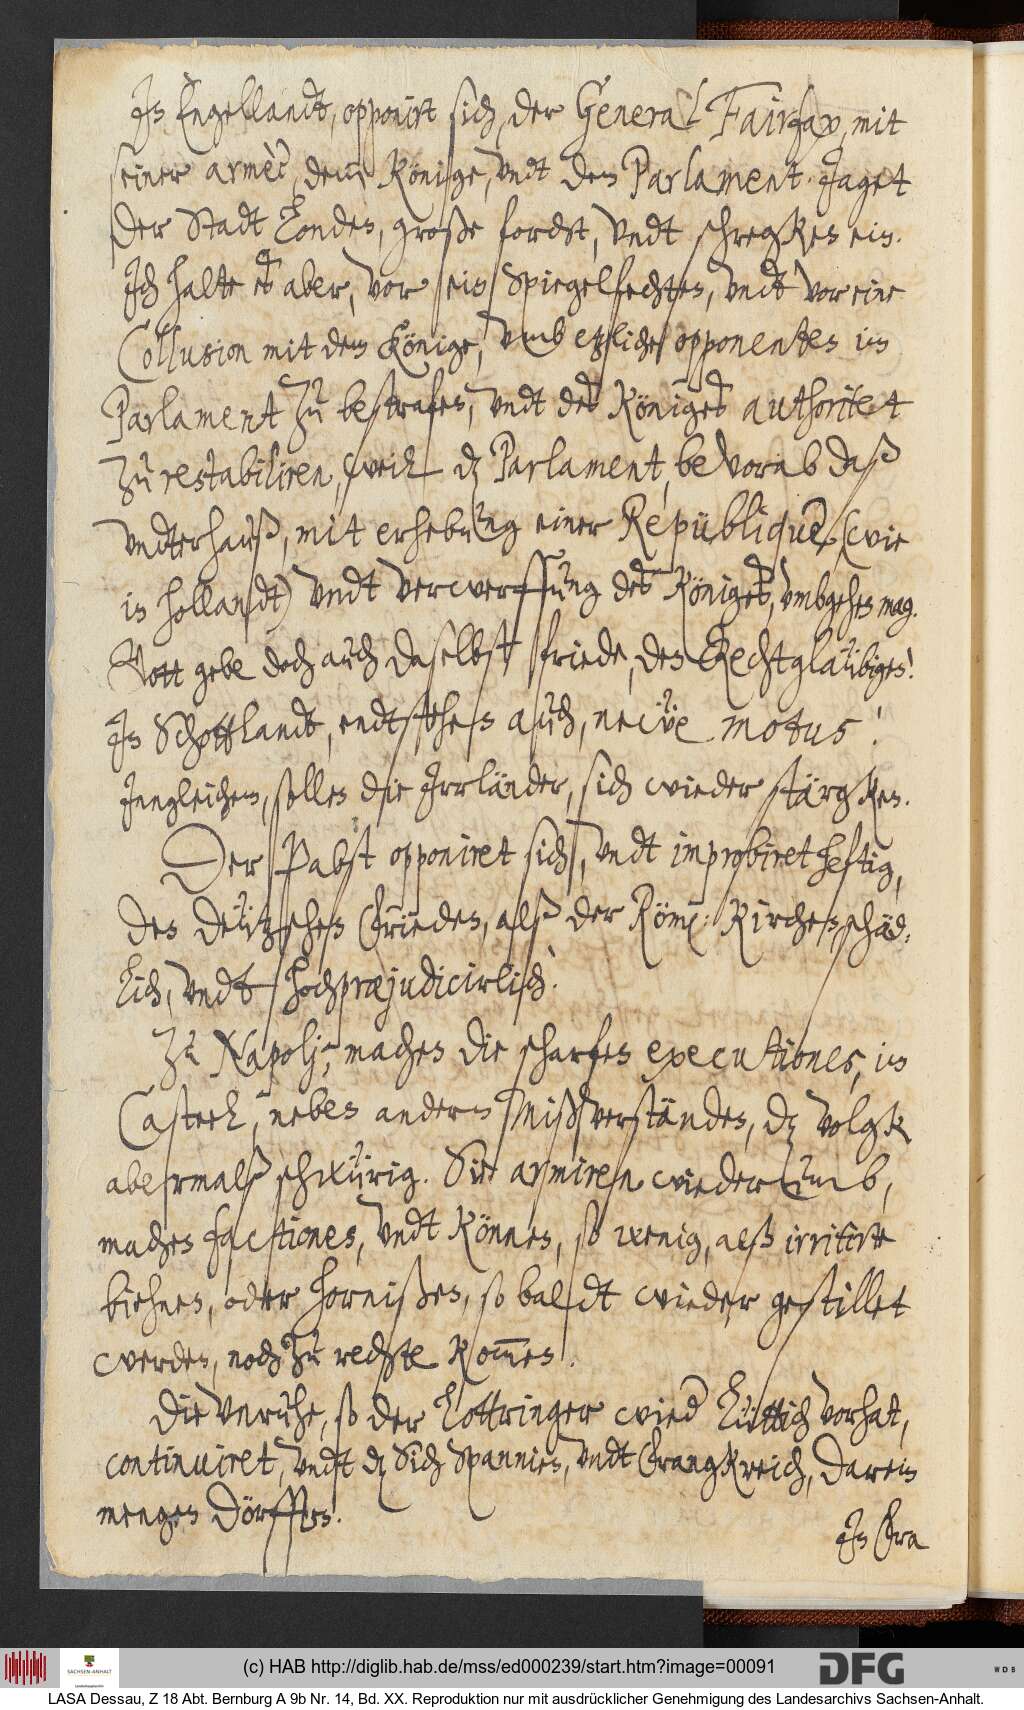 Jn Engellandt, opponirt sich, der General Fairfax, mit
seiner armèe, dem Könige, vndt dem Parlament. Jaget
der Stadt London, großeforcht, vndt schregken ein.
Jch halte es aber, vor ein Spiegelfechten, vndt vor eine
Collusion mit dem Könige, vmb etzliche opponenten im
Parlament zu bestrafen, vndt des Königes authoritet
zu restabiliren, weil dz Parlament, bevorab daß
vndterhauß, mit erhebung einer Republique, (wie
in hollandt) vndt verwerffung des Königes, vmbgehen mag.
Gott gebe doch auch daselbst friede, den Rechtgläubigen!
Jn Schottlandt, endtstehen auch, neüe motus!
Jnngleichen, sollen die Jrrländer, sich wieder stärgken.
Der Pabst opponiret sich, vndt improbiret heftig,
den deützschen frieden, alß der Röm: Kirchen, schäd-
lich, vndt hochpræjudicirlich.
Zu Napolj, machen die scharfen executiones, im
Casteel, neben andern Mißverständen, dz volgk
abermalß schwürig. Sie armiren wiederumb,
machen factiones, vndt können, so wenig, alß irritirte
biehnen, oder hornißen, so baldt wieder gestillet
werden, noch zu rechte kommen.
Die vnruhe, so der Lottringer wied Lüttich vorhat,
continuiret, vndt dz Sich Spannien, vndt Frangkreich, darein
mengen dörfften.
Jn Fra
(c) HAB http://diglib.hab.de/mss/ed000239/start.htm?image=00091
SACHSEN-ANHALT
DFG
WDB
LASA Dessau, Z 18 Abt. Bernburg A 9b Nr. 14, Bd. XX. Reproduktion nur mit ausdrücklicher Genehmigung des Landesarchivs Sachsen-Anhalt.